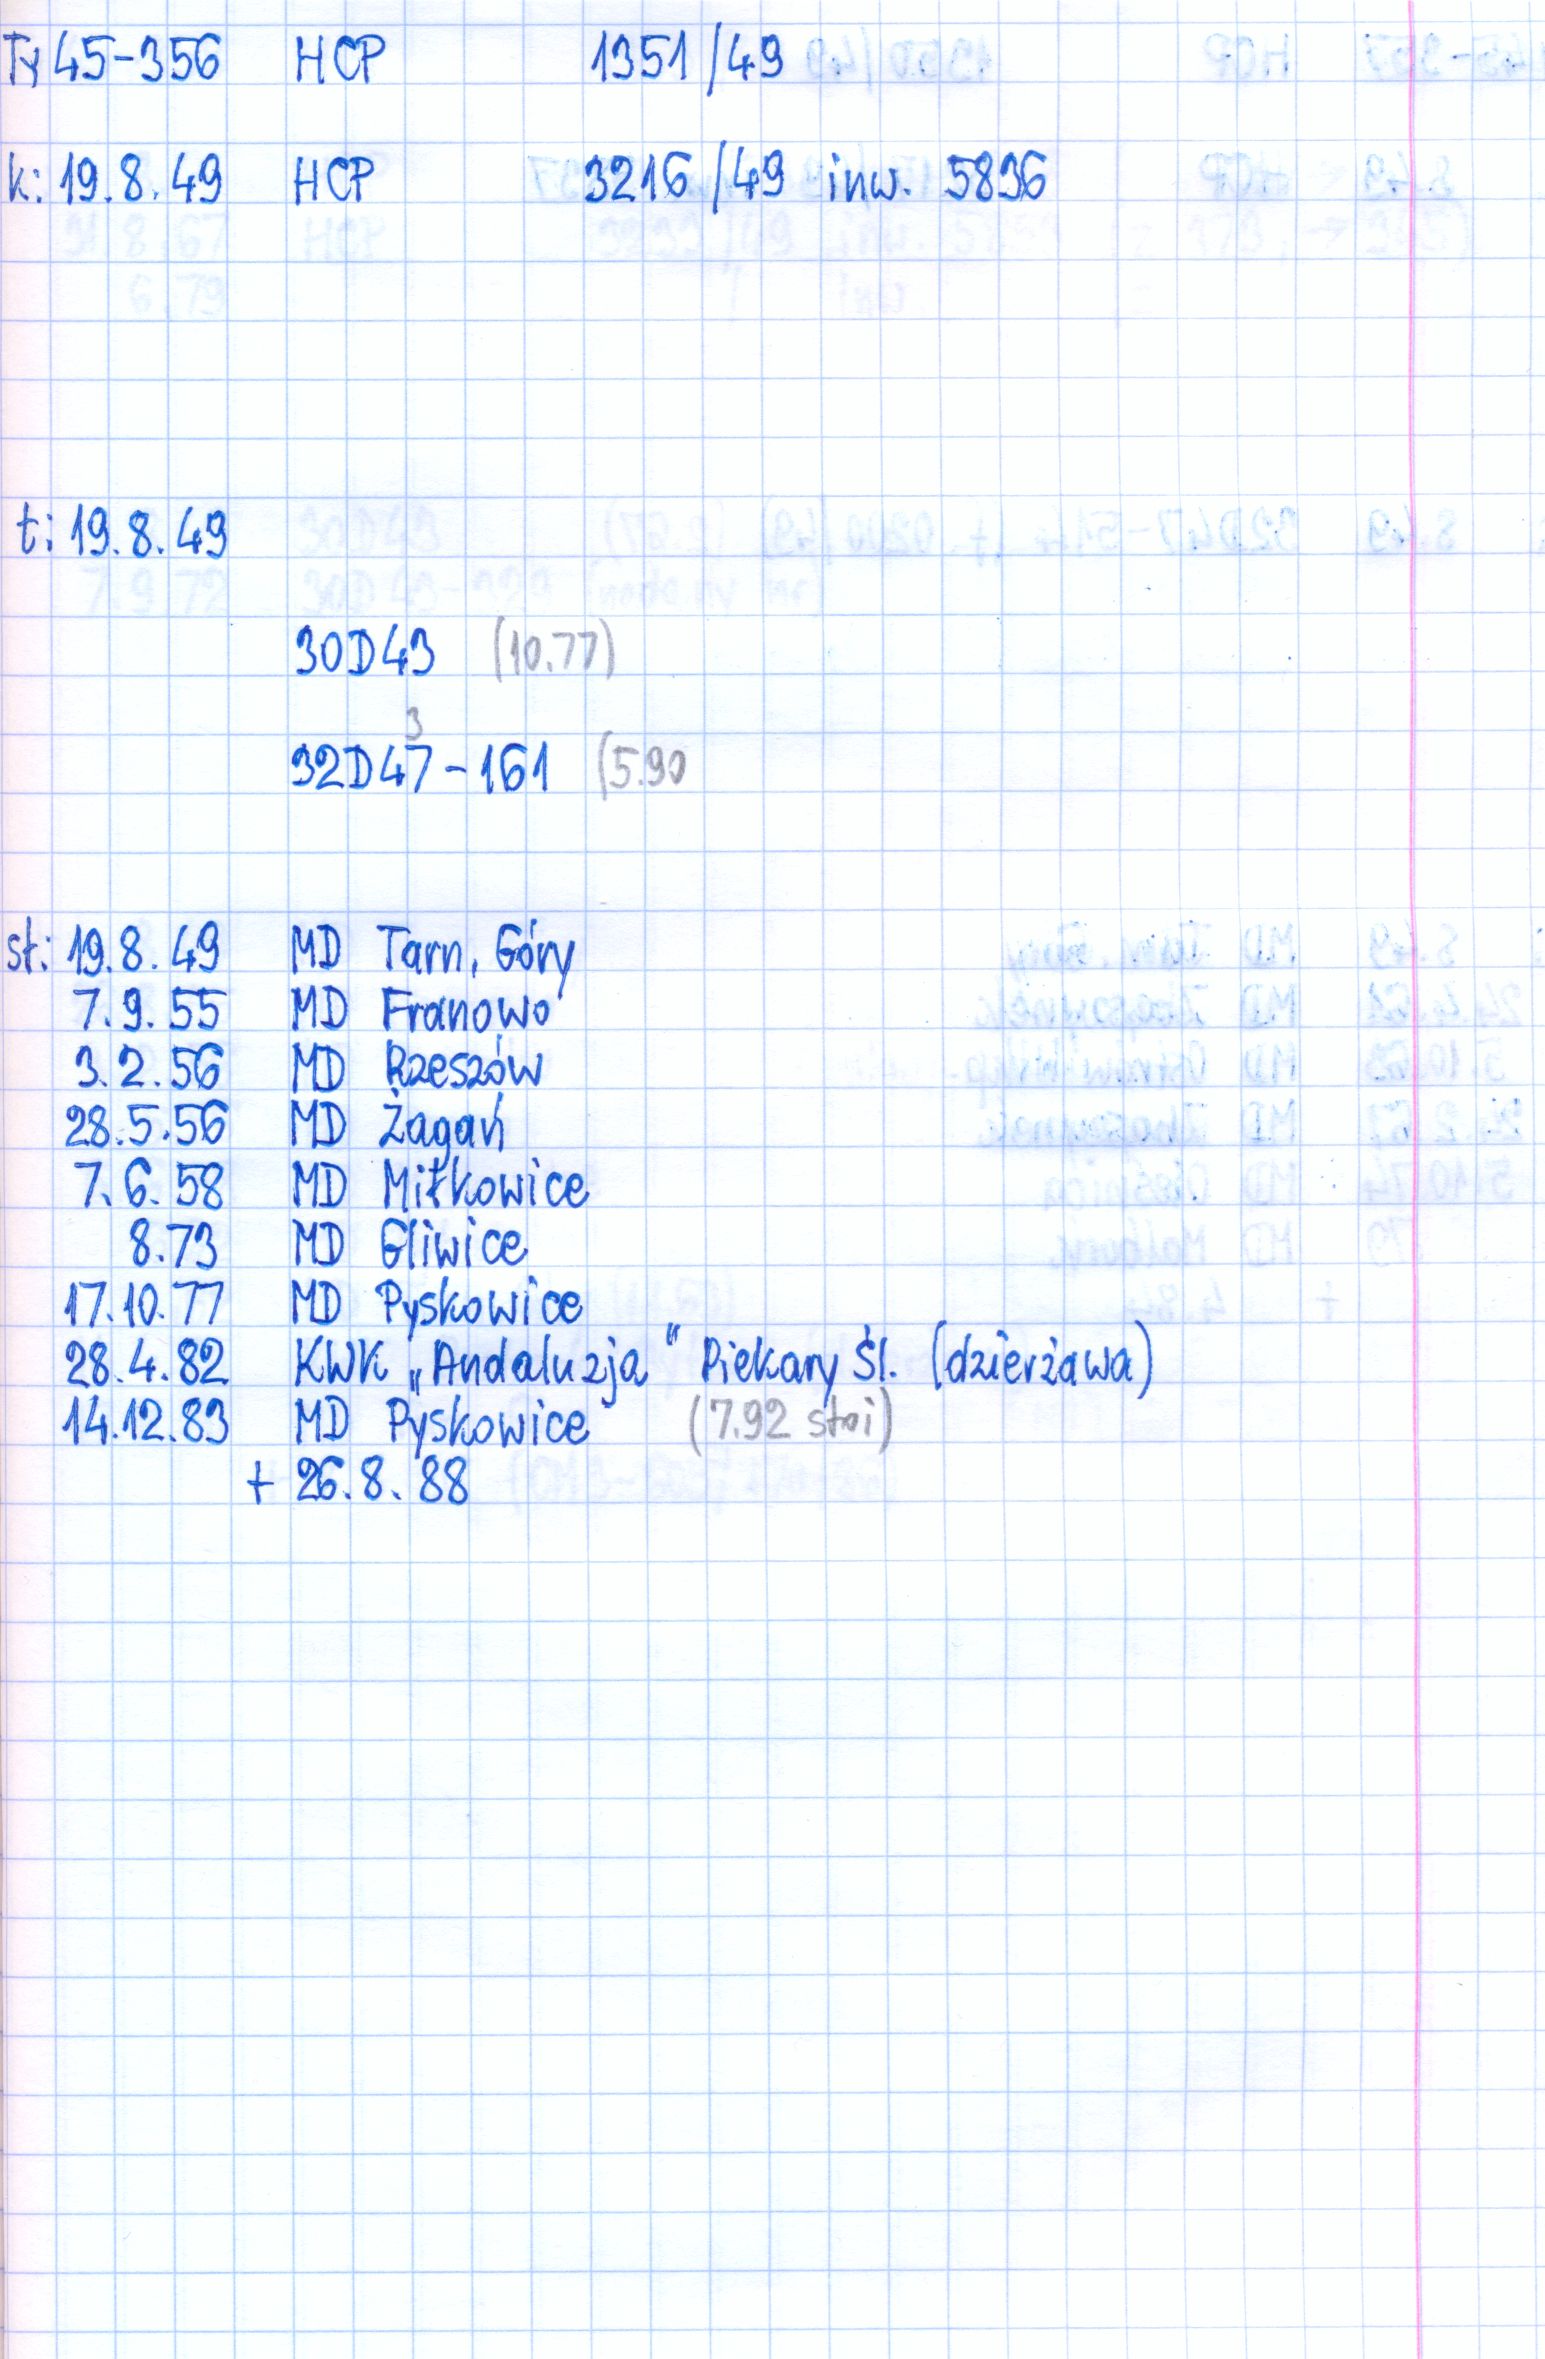 Ty45-356 HCP 1351/49
k: 19.8.49 HCP 3216/49 inw. 5836
t: 19.8.49
30D43 (10.77)
3
32D47-161 (5.90
st: 19.8.49 MD Tarn. Góry
7.9.55 MD Franowo
3.2.56 MD Rzeszów
28.5.56 MD Żagań
7.6.58 MD Miłkowice
8.73 MD Gliwice
17.10.77 MD Pyskowice
28.4.82 KWK „Andaluzja" Piekary Śl. (dzierżawa)
14.12.83 MD Pyskowice (7.92 stoi)
+ 26.8.88